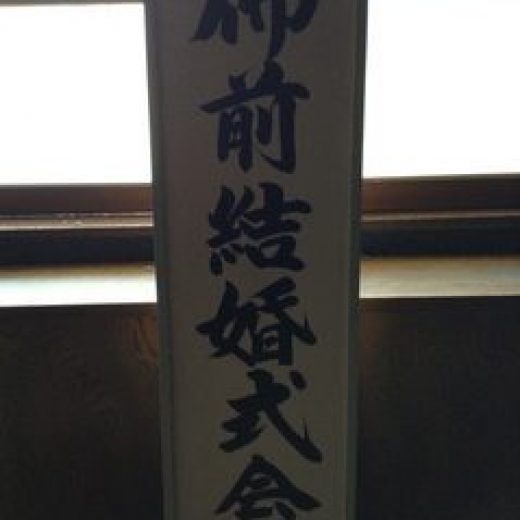 佛前結婚式会